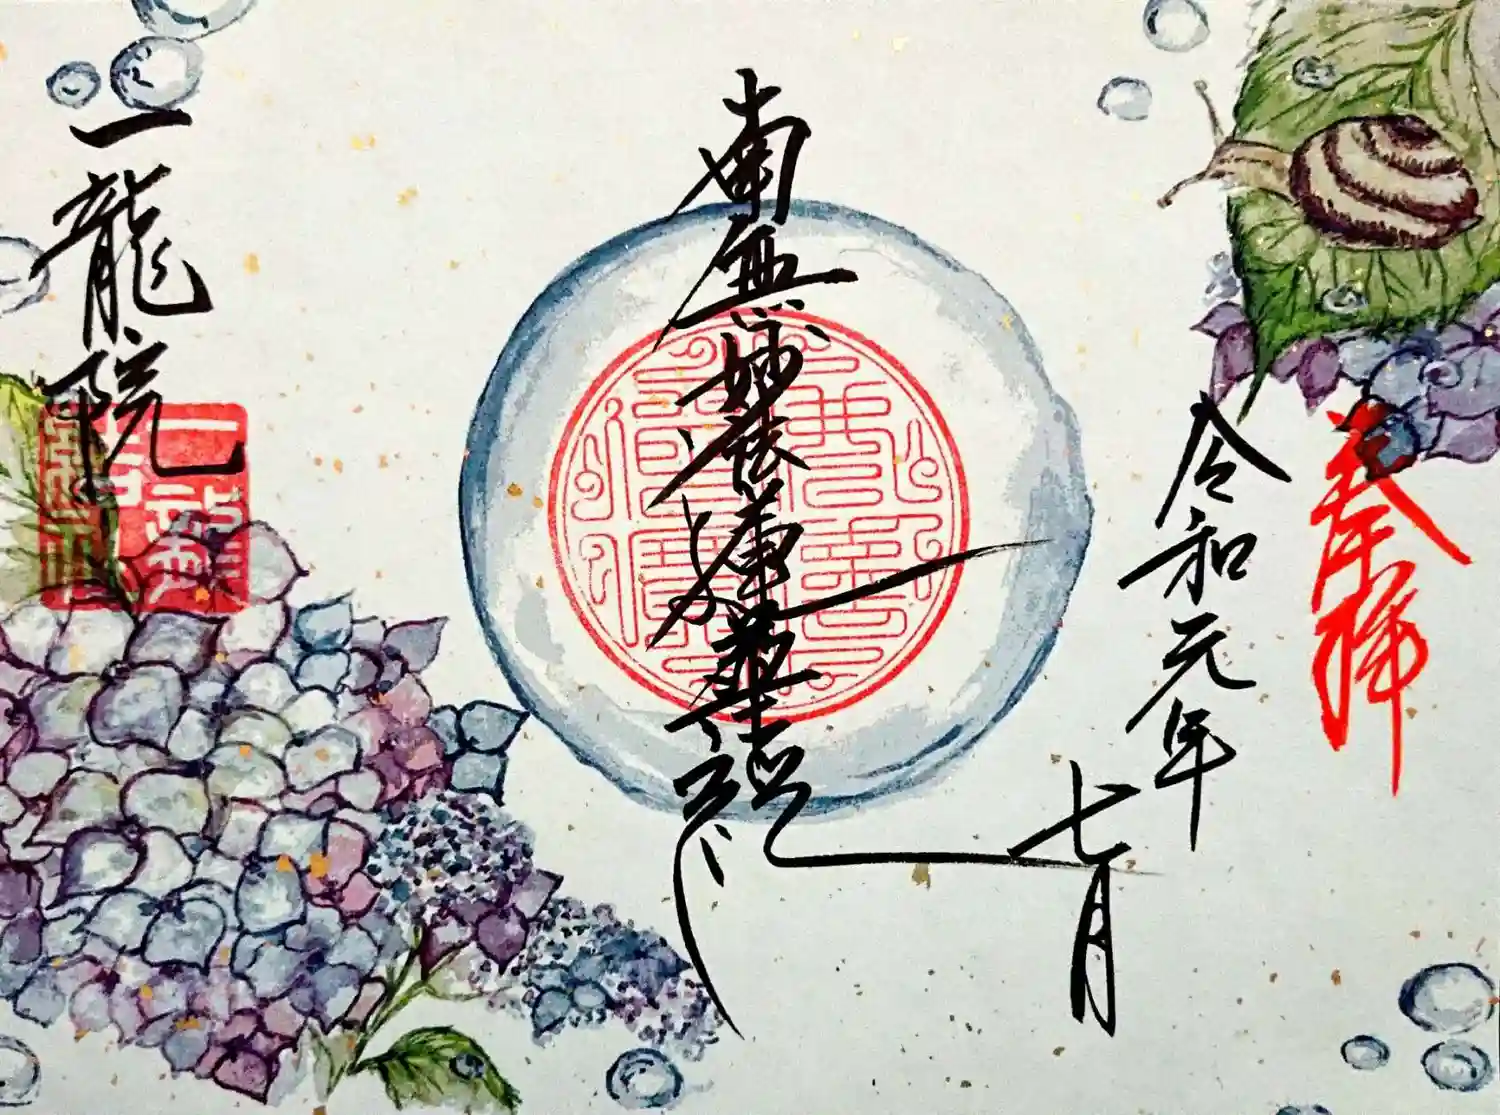 奉拝
令和元年
七月
南無妙法蓮華經
一龍院